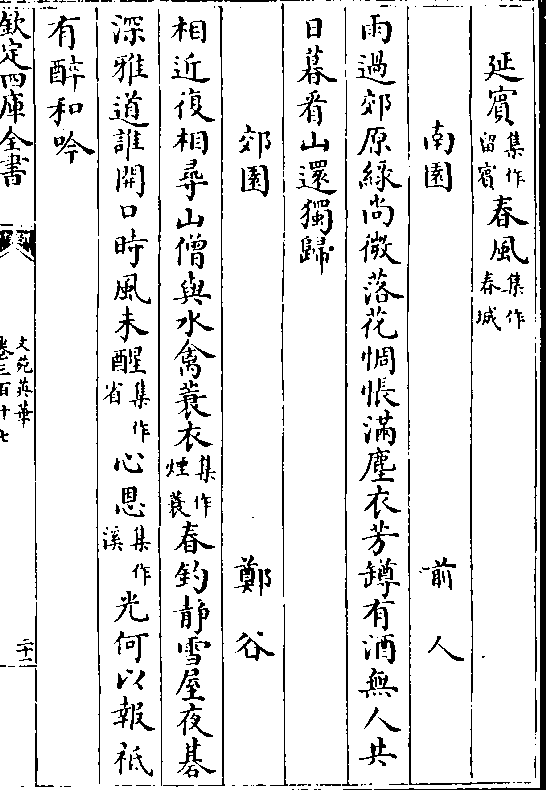 延賓集作留賓春風集作春城
南園 前人
雨過郊原綠尚微落花惆悵滿塵衣芳罇有酒無人共
日暮看山還獨歸
郊園 鄭谷
相近復相尋山僧與水禽蓑衣集作煙蓑春釣靜雪屋夜碁
深雅道誰開口時風未醒集作省心恩集作溪光何以報祗
有醉和吟
欽定四庫全書 文苑英華卷三百十七 二十二